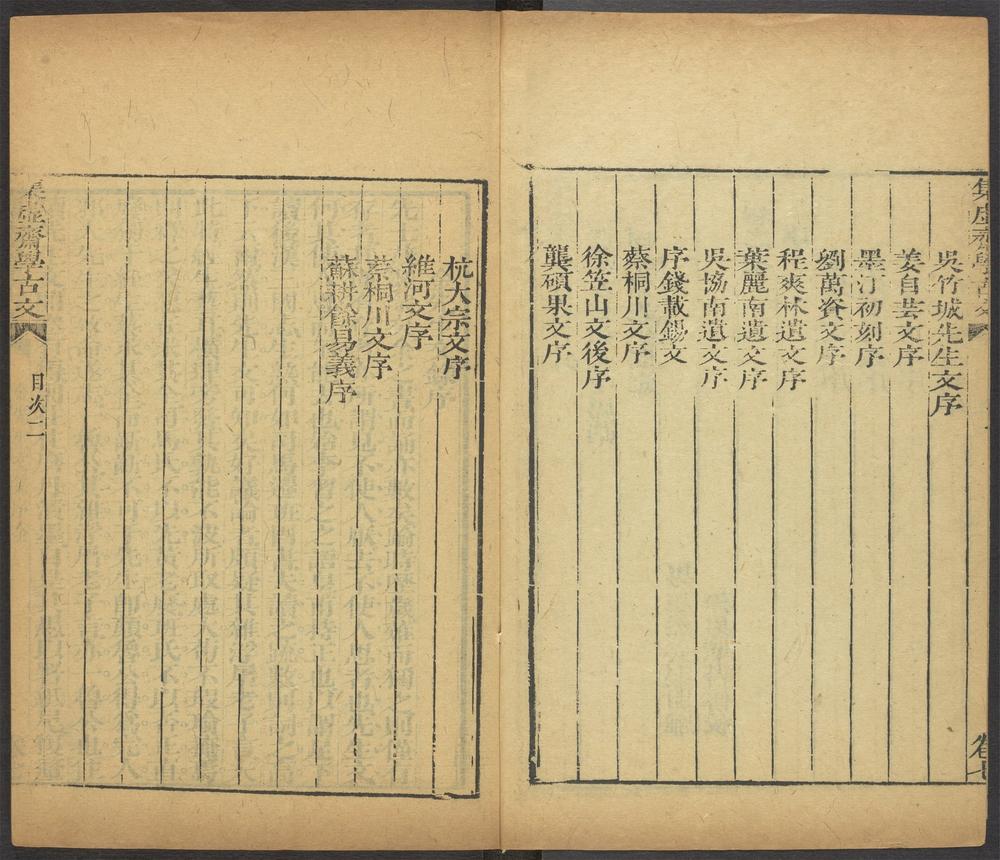 吳竹城先生文序
姜自芸文序
墨汀初刻序
劉萬資文序
程爽林遺文序
葉麗南遺文序
吳協南遺文序
序錢載錫文
蔡桐川文序
徐笠山文後序
龔碩果文序
卷七
杭大宗文序
維河文序
蔡桐川文序
蘇耕餘易義序
集虛齋學古文
目次二